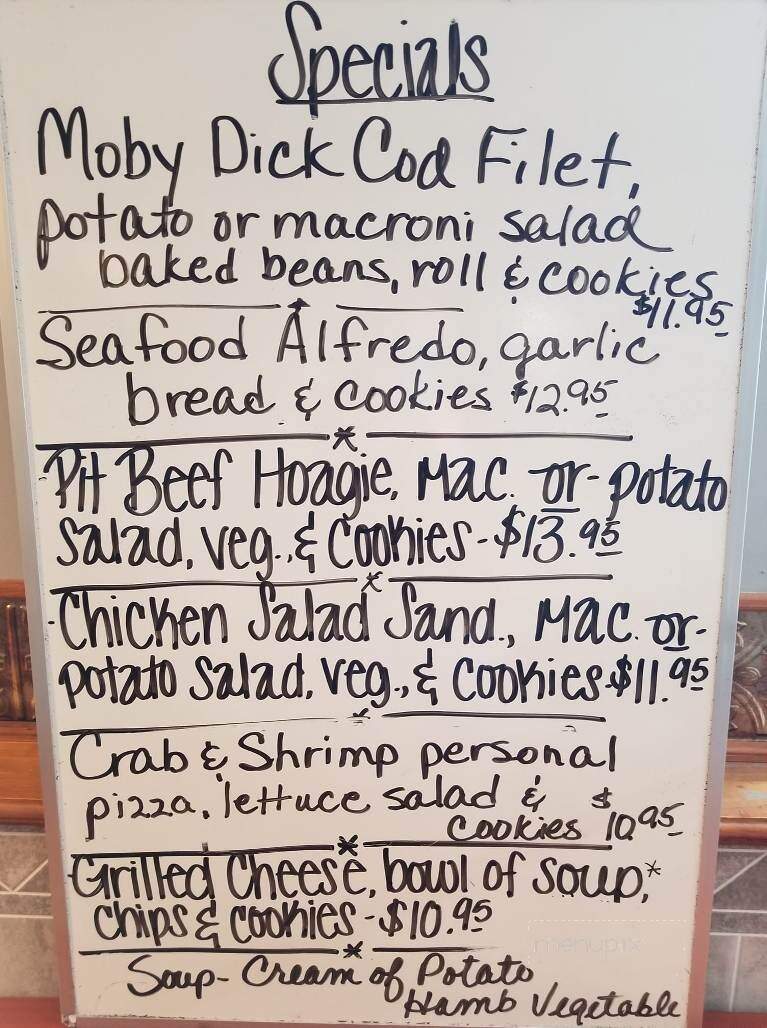 Specials
Moby Dick Cod Filet,
potato or macroni salad
baked beans, roll & cookies
$11.95
Seafood Alfredo, garlic
bread & cookies $12.95
Pit Beef Hoagie, Mac. or- potato
Salad, veg., & Cookies - $13.95
Chicken Salad Sand., Mac. or-
potato Salad, veg., & Cookies $11.95
Crab & Shrimp personal
pizza, lettuce salad & $
cookies 10.95
Grilled Cheese, bowl of soup,*
chips & cookies - $10.95
Soup- Cream of Potato
Hamb Vegetable
menupix